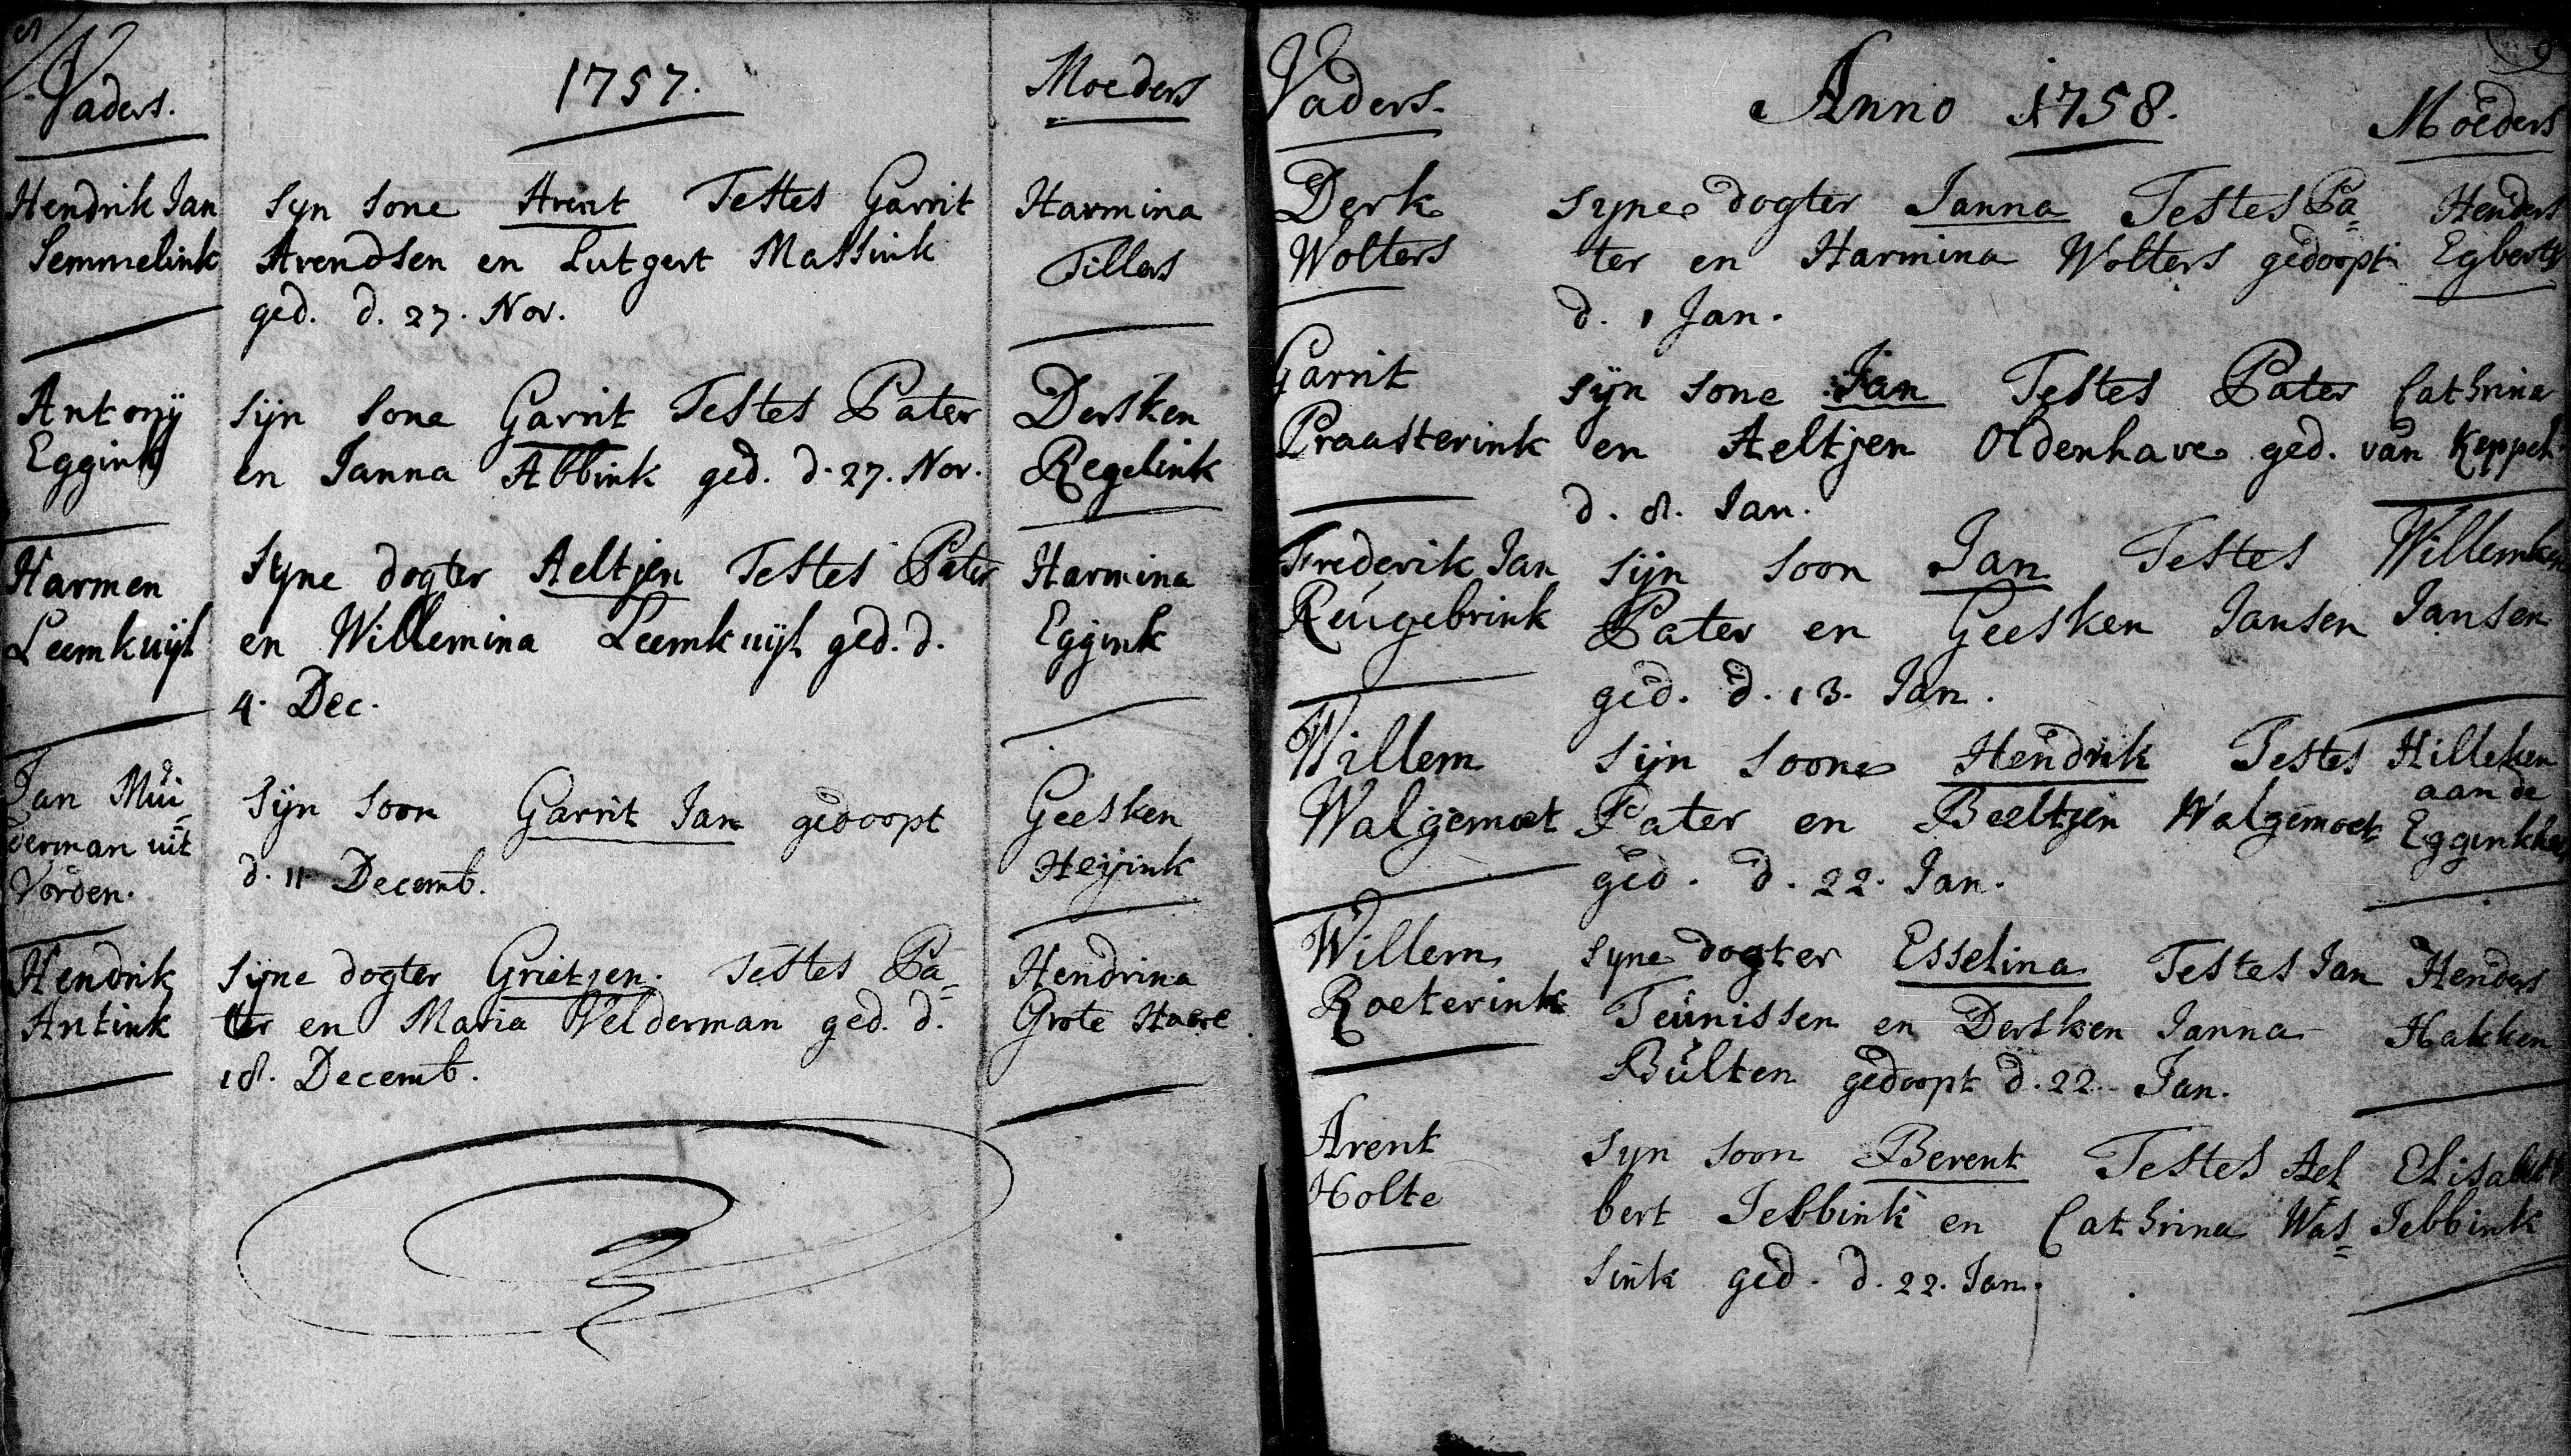 8
Vaders.
1757.
Moeders
Hendrik Jan
Semmelink
Syn sone Arent Testes Garrit
Arendsen en Lutgert Massink
ged. d. 27. Nov.
Harmina
Tillers
Antonÿ
Eggink
Sijn sone Garrit Testes Pater
en Janna Abbink ged. d. 27. Nov.
Dersken
Regelink
Harmen
Leemkuijl
Syne dogter Aeltjen Testes Pater
en Willemina Leemkuijl ged. d.
4. Dec.
Harmina
Eggink
Jan Mui=
derman uit
Vorden.
Sijn soon Garrit Jan gedoopt
d. 11 Decemb.
Geesken
Heijink
Hendrik
Antink
Sijne dogter Grietjen. Testes Pa=
ter en Maria Velderman ged. d.
18. Decemb.
Hendrina
Grote Haere
9
Vaders.
Anno 1758.
Moeders
Derk
Wolters
Syne dogter Janna Testes Pa=
ter en Harmina Wolters gedoopt
d. 1 Jan.
Henders
Egberts
Garrit
Praasterink
Sijn sone Jan Testes Pater
en Aeltjen Oldenhave ged.
d. 8. Jan.
Cathrina
van Keppel
Frederik Jan
Reugebrink
Sijn soon Jan Testes
Pater en Geesken Jansen
ged. d. 13. Jan.
Willemken
Jansen
Willem
Walgemoet
Sijn soone Hendrik Testes
Pater en Beeltjen Walgemoet
ged. d. 22. Jan.
Hilleken
aan de
Willem
Roeterink
Syne dogter Esselina Testes Jan
Teunissen en Dersken Janna
Bulten gedoopt d. 22. Jan.
Henders
Hakken
Arent
Holte
Syn soon Berent Testes Ael
bert Jebbink en Cathrina Was=
sink ged. d. 22. Jan.
Elisabeth
Jebbink